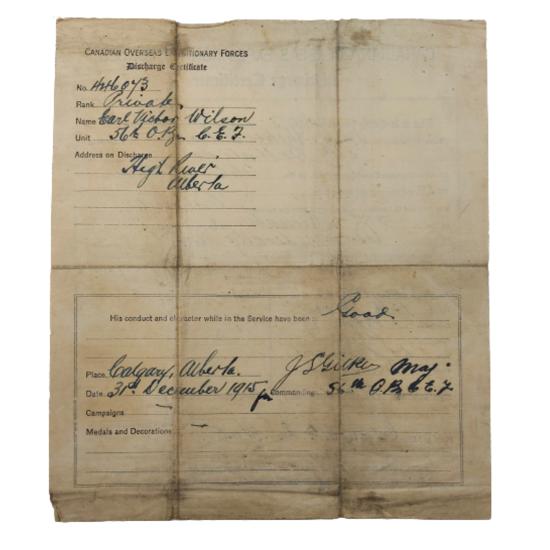 CANADIAN OVERSEAS EXPEDITIONARY FORCES
Discharge Certificate
No. 446073
Rank Private
Name Earl Victor Wilson
Unit 56th O.Bn C.E.F.
Address on Discharge
High River
Alberta
His conduct and character while in the Service have been :- Good
Place Calgary, Alberta. Maj.
Date 31st December 1915 for Commanding 56th O.B. C.E.F
Campaigns —
Medals and Decorations —